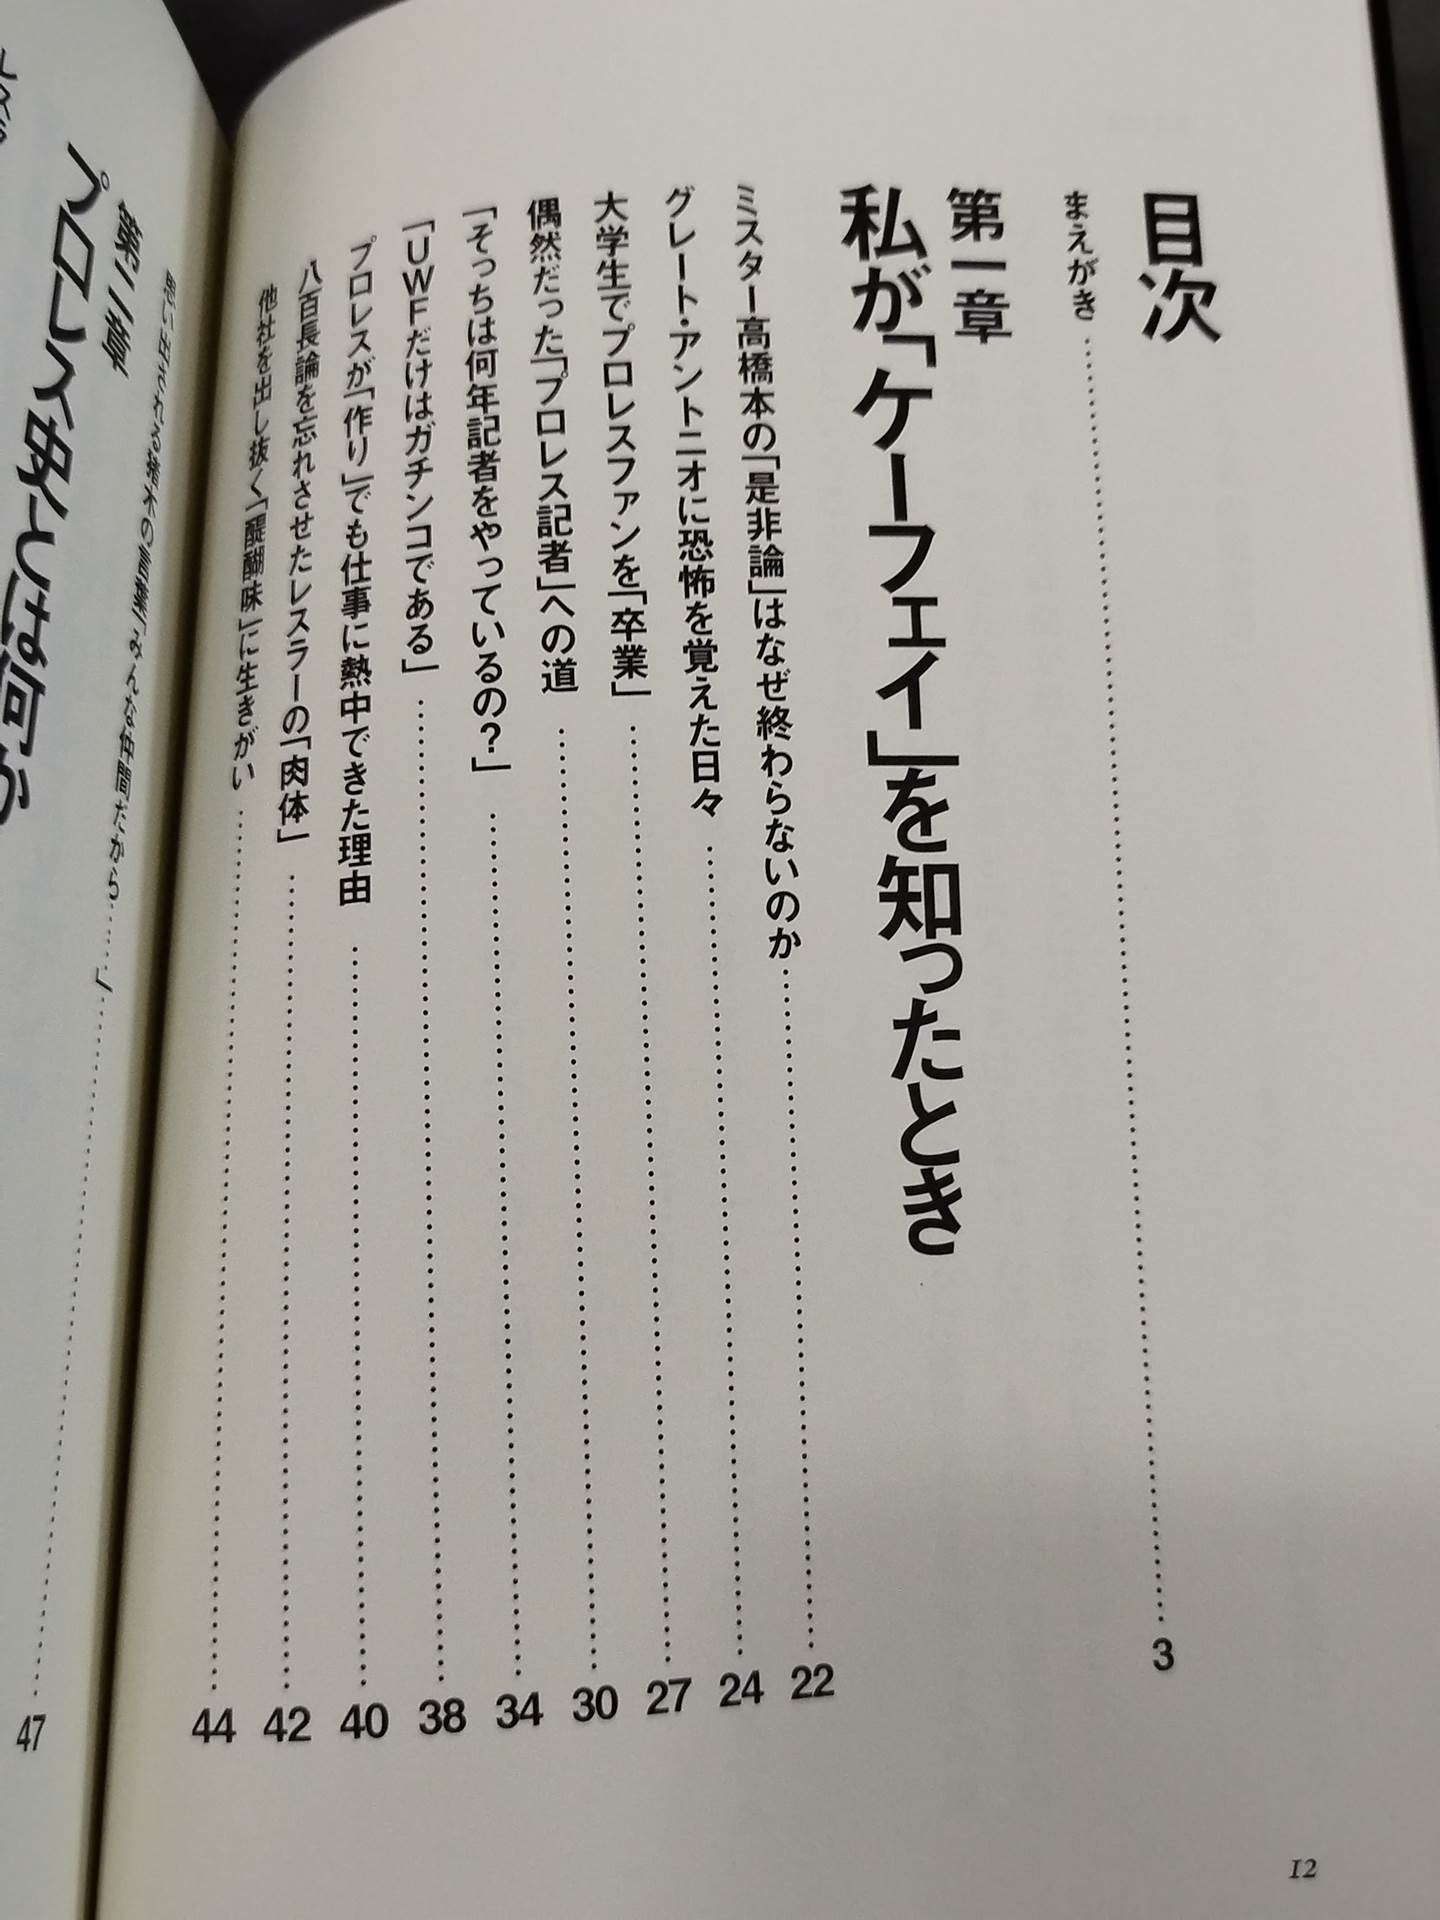 目次
まえがき……3
第一章
私が「ケーフェイ」を知ったとき
ミスター高橋本の「是非論」はなぜ終わらないのか……22
グレート・アントニオに恐怖を覚えた日々……24
大学生でプロレスファンを「卒業」……27
偶然だった「プロレス記者」への道……30
「そっちは何年記者をやっているの？」……34
「UWFだけはガチンコである」……38
プロレスが「作り」でも仕事に熱中できた理由……40
八百長論を忘れさせたレスラーの「肉体」……42
他社を出し抜く「醍醐味」に生きがい……44
思い出される猪木の言葉「みんな仲間だから……」……47
第二章
プロレス史とは何か
12